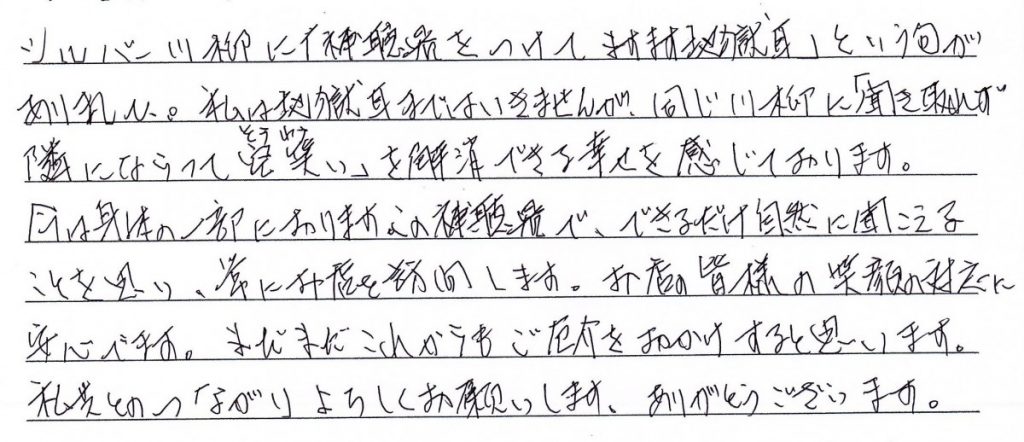 シルバー川柳に「補聴器をつけてますます地獄耳」という句が
ありました。私は地獄耳まではいきませんが、同じ川柳に「聞き取れず
隣にならって空笑い」を解消できる幸せを感じております。
今は身体の一部になりますこの補聴器で、できるだけ自然に聞こえる
ことを思い、常にお店を訪問します。お店の皆様の笑顔の対応に
安心です。まだまだこれからもご厄介をおかけすると思います。
私共とのつながりよろしくお願いします。ありがとうございます。